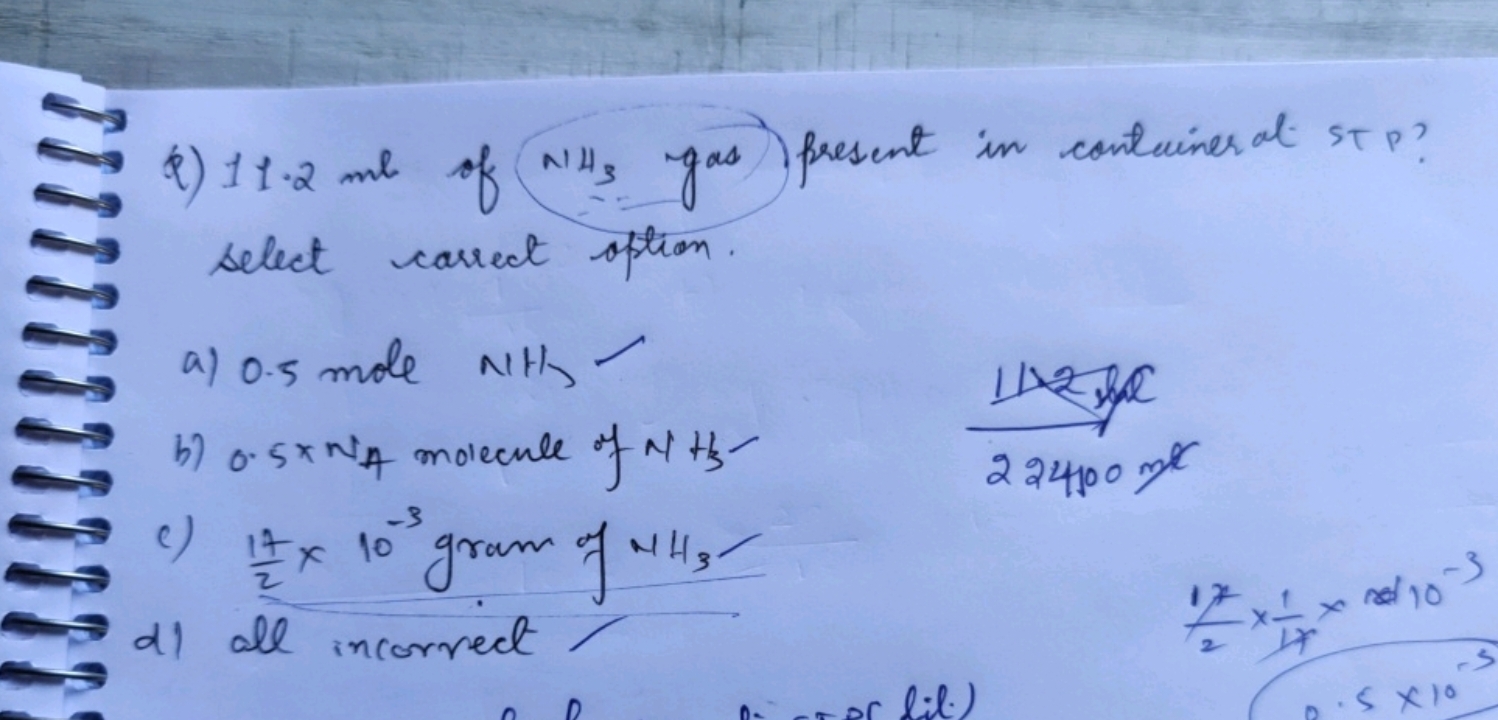 Q) 11.2 ml of NH₃ gas present in container at STP?
select correct option.
a) 0.5 mole NH₃ ✓
b) 0.5 x NA molecule of NH₃ ✓
c) 17/2 x 10⁻³ gram of NH₃ ✓
d) all incorrect ✓
11.2 ml
22400 ml
17/2 x 1/17 x 10⁻³
0.5 x 10⁻³